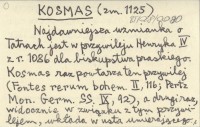 KOSMAS (zm. 1125)
Najdawniejsza wzmianka o
Tatrach jest w przywileju Henryka IV
z r. 1086 dla biskupstwa praskiego.
Kosmas raz powtarza ten przywilej
(Fontes rerum bohem. II, 116; Pertz
Mon. Germ. SS. IX, 92), a drugi raz,
widocznie w związku z tym przywi-
lejem, wkłada w usta umierającego,